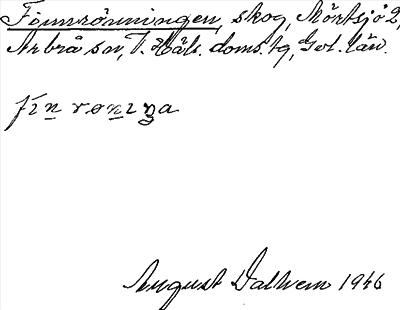 Finnrönningen, skog, Mörtsjö 2,
Arbrå sn, V. Häls. doms. tg, Gvl. län.
fin rønıŋa
August Dalhem 1946